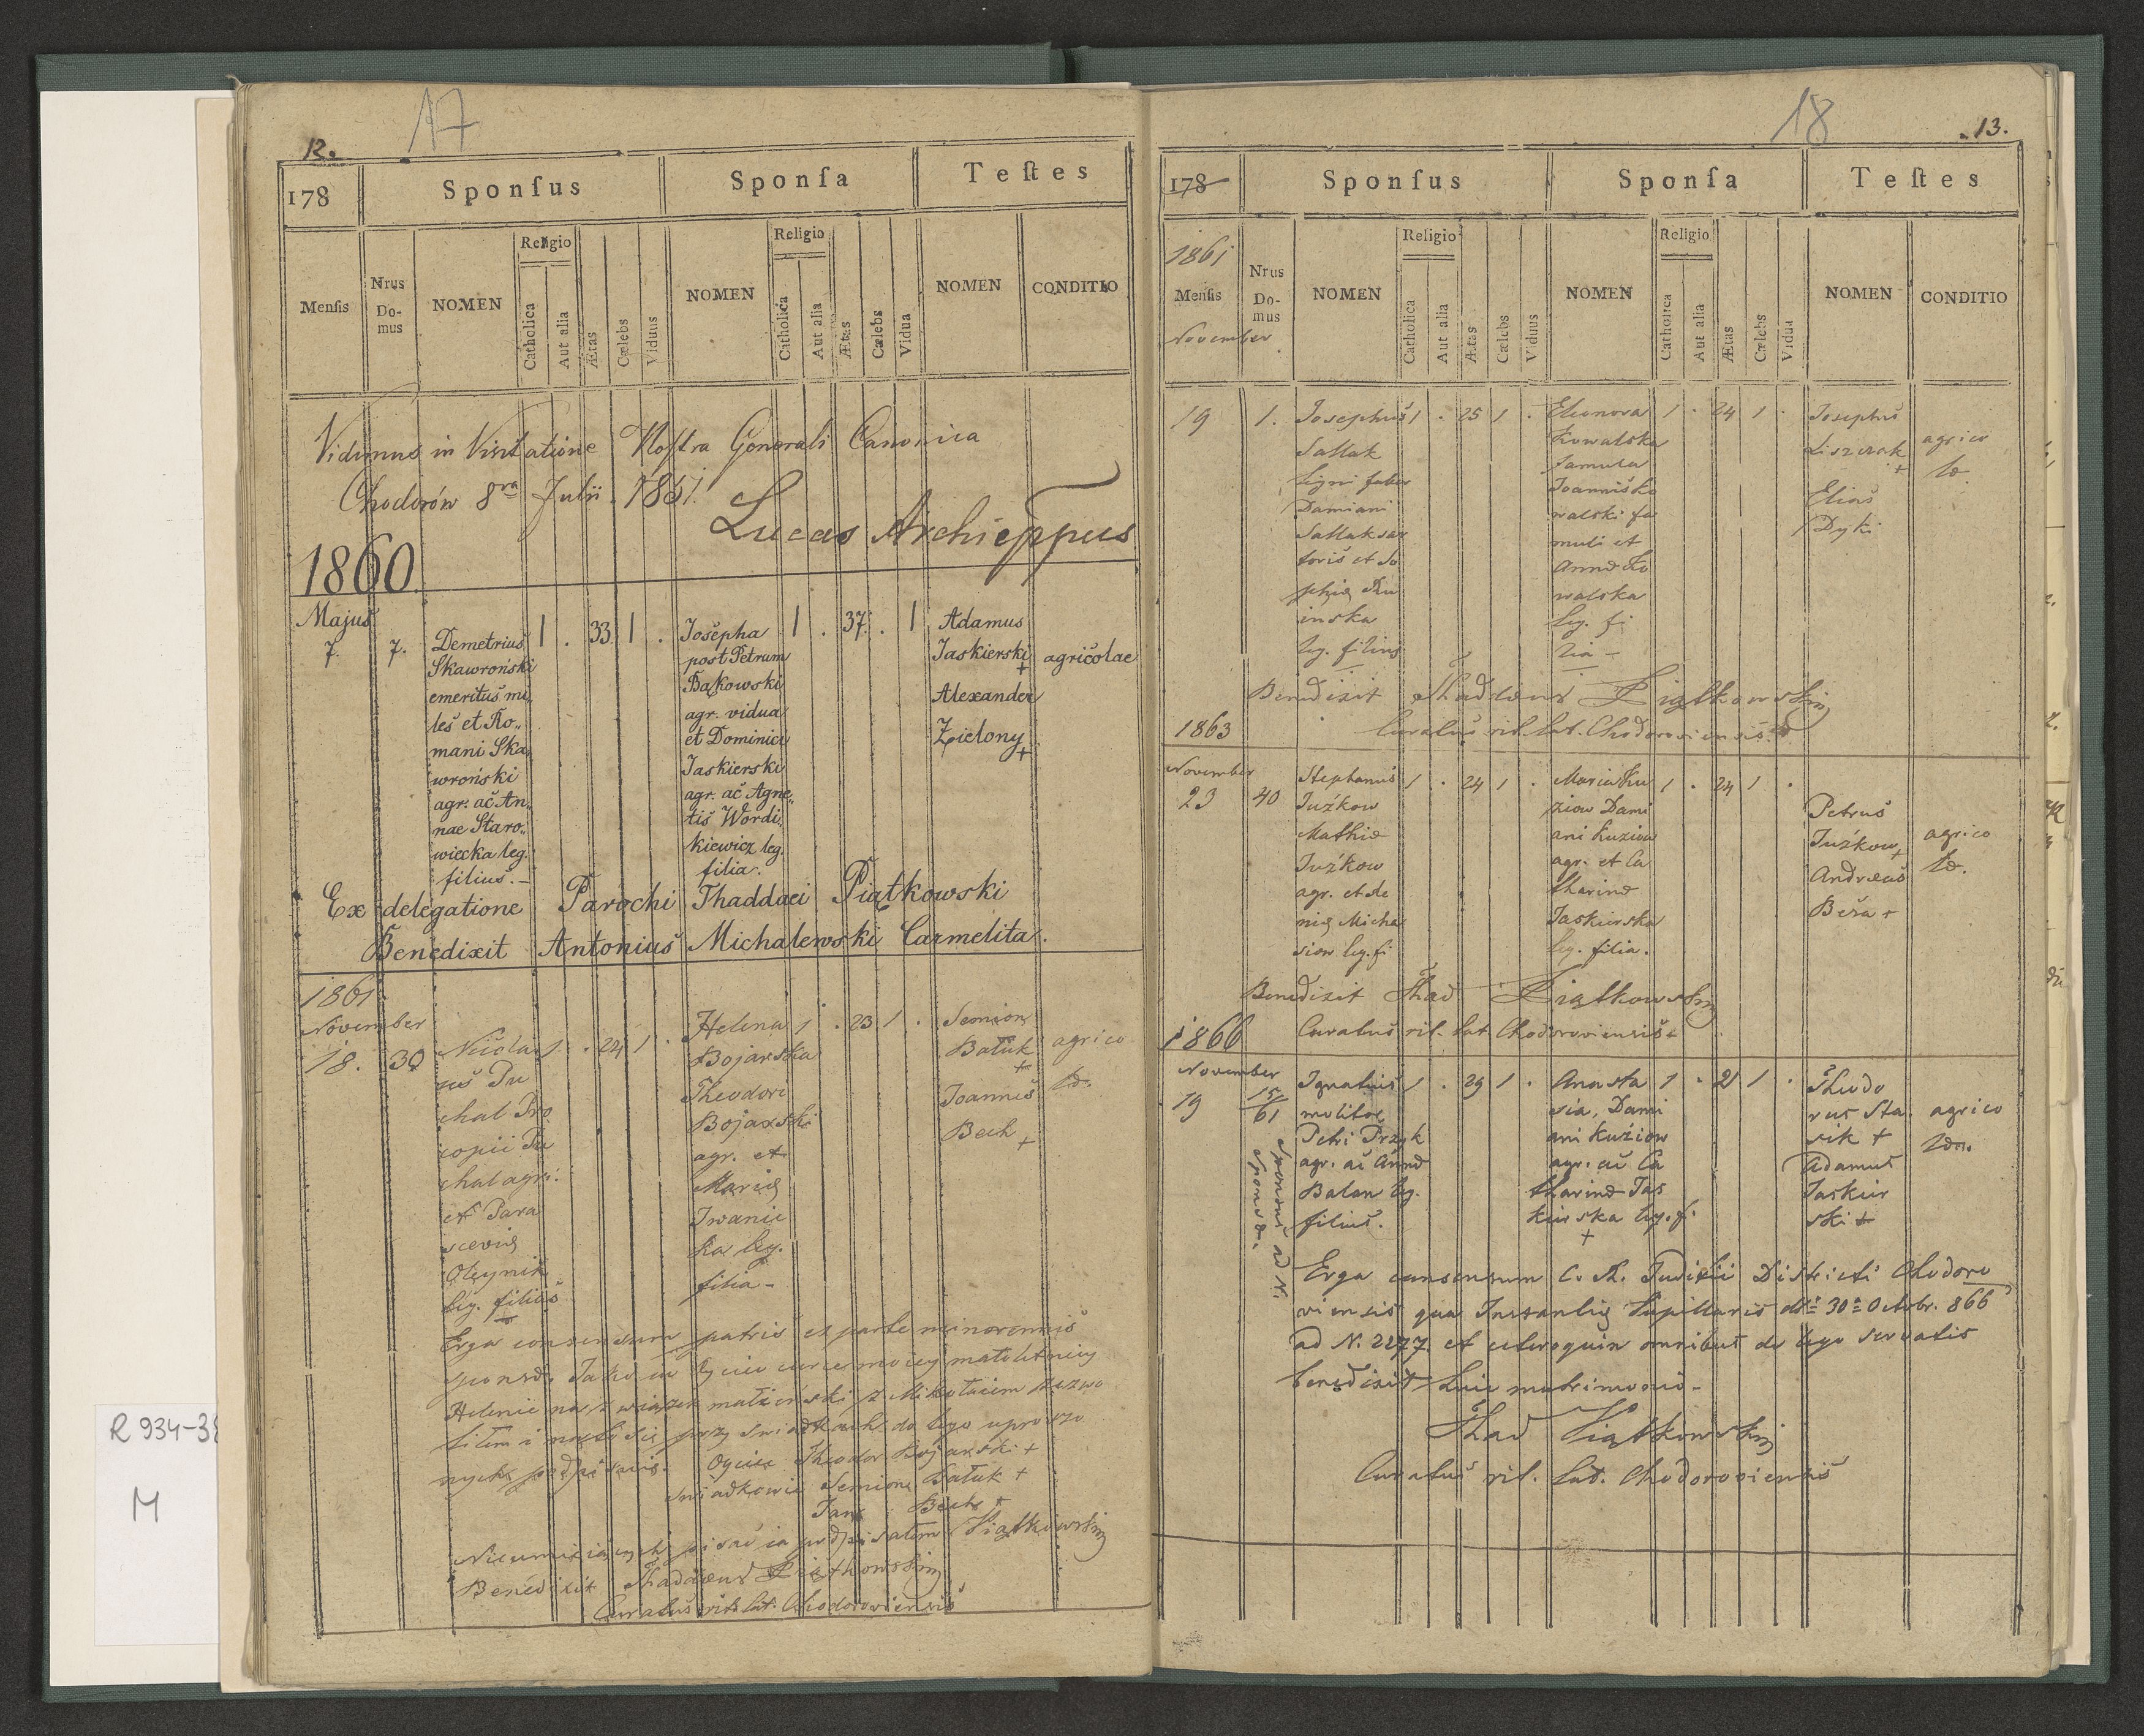 12.
17
178
Sponſus
Sponſa
Teſtes
Menſis
Nrus Do-mus
NOMEN
Religio
Catholica
Aut alia
Ætas
Cælebs
Viduus
NOMEN
Religio
Catholica
Aut alia
Ætas
Cælebs
Vidua
NOMEN
CONDITIO
Vidimus in Visitatione Noſtra Generali Canonica
Chodorów 8va Julii 1861.
Lucas Archieppus
1860
Majus
7.
7.
Demetrius
Skawroński
emeritus mi„
les et Ro„
mani Ska„
wroński
agr. ac An„
nae Staro„
wiecka leg.
filius.
1 . 33 1 .
Josepha
post Petrum
Bąkowski
agr. vidua
et Dominici
Jaskierski
agr. ac Agne„
tis Wordi„
kiewicz leg.
filia.
1 . 37. . 1
Adamus
Jaskierski
+
Alexander
Zielony
+
agricolae
Ex delegatione Parochi Thaddaei Piątkowski
Benedixit Antonius Michalewski Carmelita.
1861
November
18.
30
Nicola
us Pu
chal Pro
copii Pu
chal agr.
et Para
sceviæ
Oleynik
leg. filius
1 . 24 1 .
Helena
Bojarska
Theodori
Bojarski
agr. et
Mariæ
Iwanic
ka leg.
filia -
1 . 23 1 .
Semion
Bałuk
+
Joannes
Bech
+
agrico
læ.
Erga consensum patris ex parte minorennis
sponsæ. Jako ja Oyciec córce mojey małoletniey
Helenie na związek małżeński z Mikołaiem zezwo
liłem i przy swiadkach do tego uproszo
nych podpisuię. Oyciec Theodor Bojarski +
Swiadkowie Semion Bałuk +
Jan Bech +
Nieumieiących pisać ia podpisałem Piątkowski
Benedixit Thaddæus Piątkowski
Curatus rit. lat. Chodoroviensis
18
13.
178
Sponſus
Sponſa
Teſtes
1861
Menſis
November
Nrus Do-mus
NOMEN
Religio
Catholica
Aut alia
Ætas
Cælebs
Viduus
NOMEN
Religio
Catholica
Aut alia
Ætas
Cælebs
Vidua
NOMEN
CONDITIO
19
1.
Josephus
Sallak
Ligni faber
Damiani
Sallak sar
toris et So
phiæ
inska
leg. filius
1 . 25 1 .
Eleonora
Kowalska
famula
Joannis Ko
walski fa
muli et
Annæ Ko
walska
leg. fi
lia -
1 . 24 1 .
Josephus
Liszczak
+
Elias
Dyki
agrico
læ.
Benedixit Thaddæus Piątkowski
Curatus rit. lat. Chodoroviensis
1863
November
23
40
Stephanus
Juźkow
Mathiæ
Juźkow
agr. et Xe
niæ Micha
siow leg. fi
1 . 24 1 .
Maria Ku
ziow Dami
ani Kuziow
agr. et Ca
tharinæ
Jaskierska
leg. filia.
1 . 24 1 .
Petrus
Juźkow
+
Andreas
Beża +
agrico
læ.
Benedixit Thad Piątkowski
Curatus rit. lat. Chodoroviensis
1866
November
19
15/61
Sponsus ad N.
sponsæ.
Ignatius
molitor
Petri Przyk
agr. ac Annæ
Balan leg.
filius.
1 . 29 1 .
Anasta
sia, Dami
ani Kuźiow
agr. ac Ca
tharinæ Jas
kierska leg. f.
+
1 . 21 1 .
Theodo
rus Sta
sik +
Adamus
Jaskier
ski +
agrico
læ.
Erga consensum C. R. Judicii Districti Chodoro
viensis qua Instantiæ Pupillaris dto 30a Octobr. 866
ad N. 2277. et ceteroquin omnibus de lege servatis
benedixit huic matrimonio -
Thad Piątkowski
Curatus rit. lat. Chodoroviensis
R 934-38
M